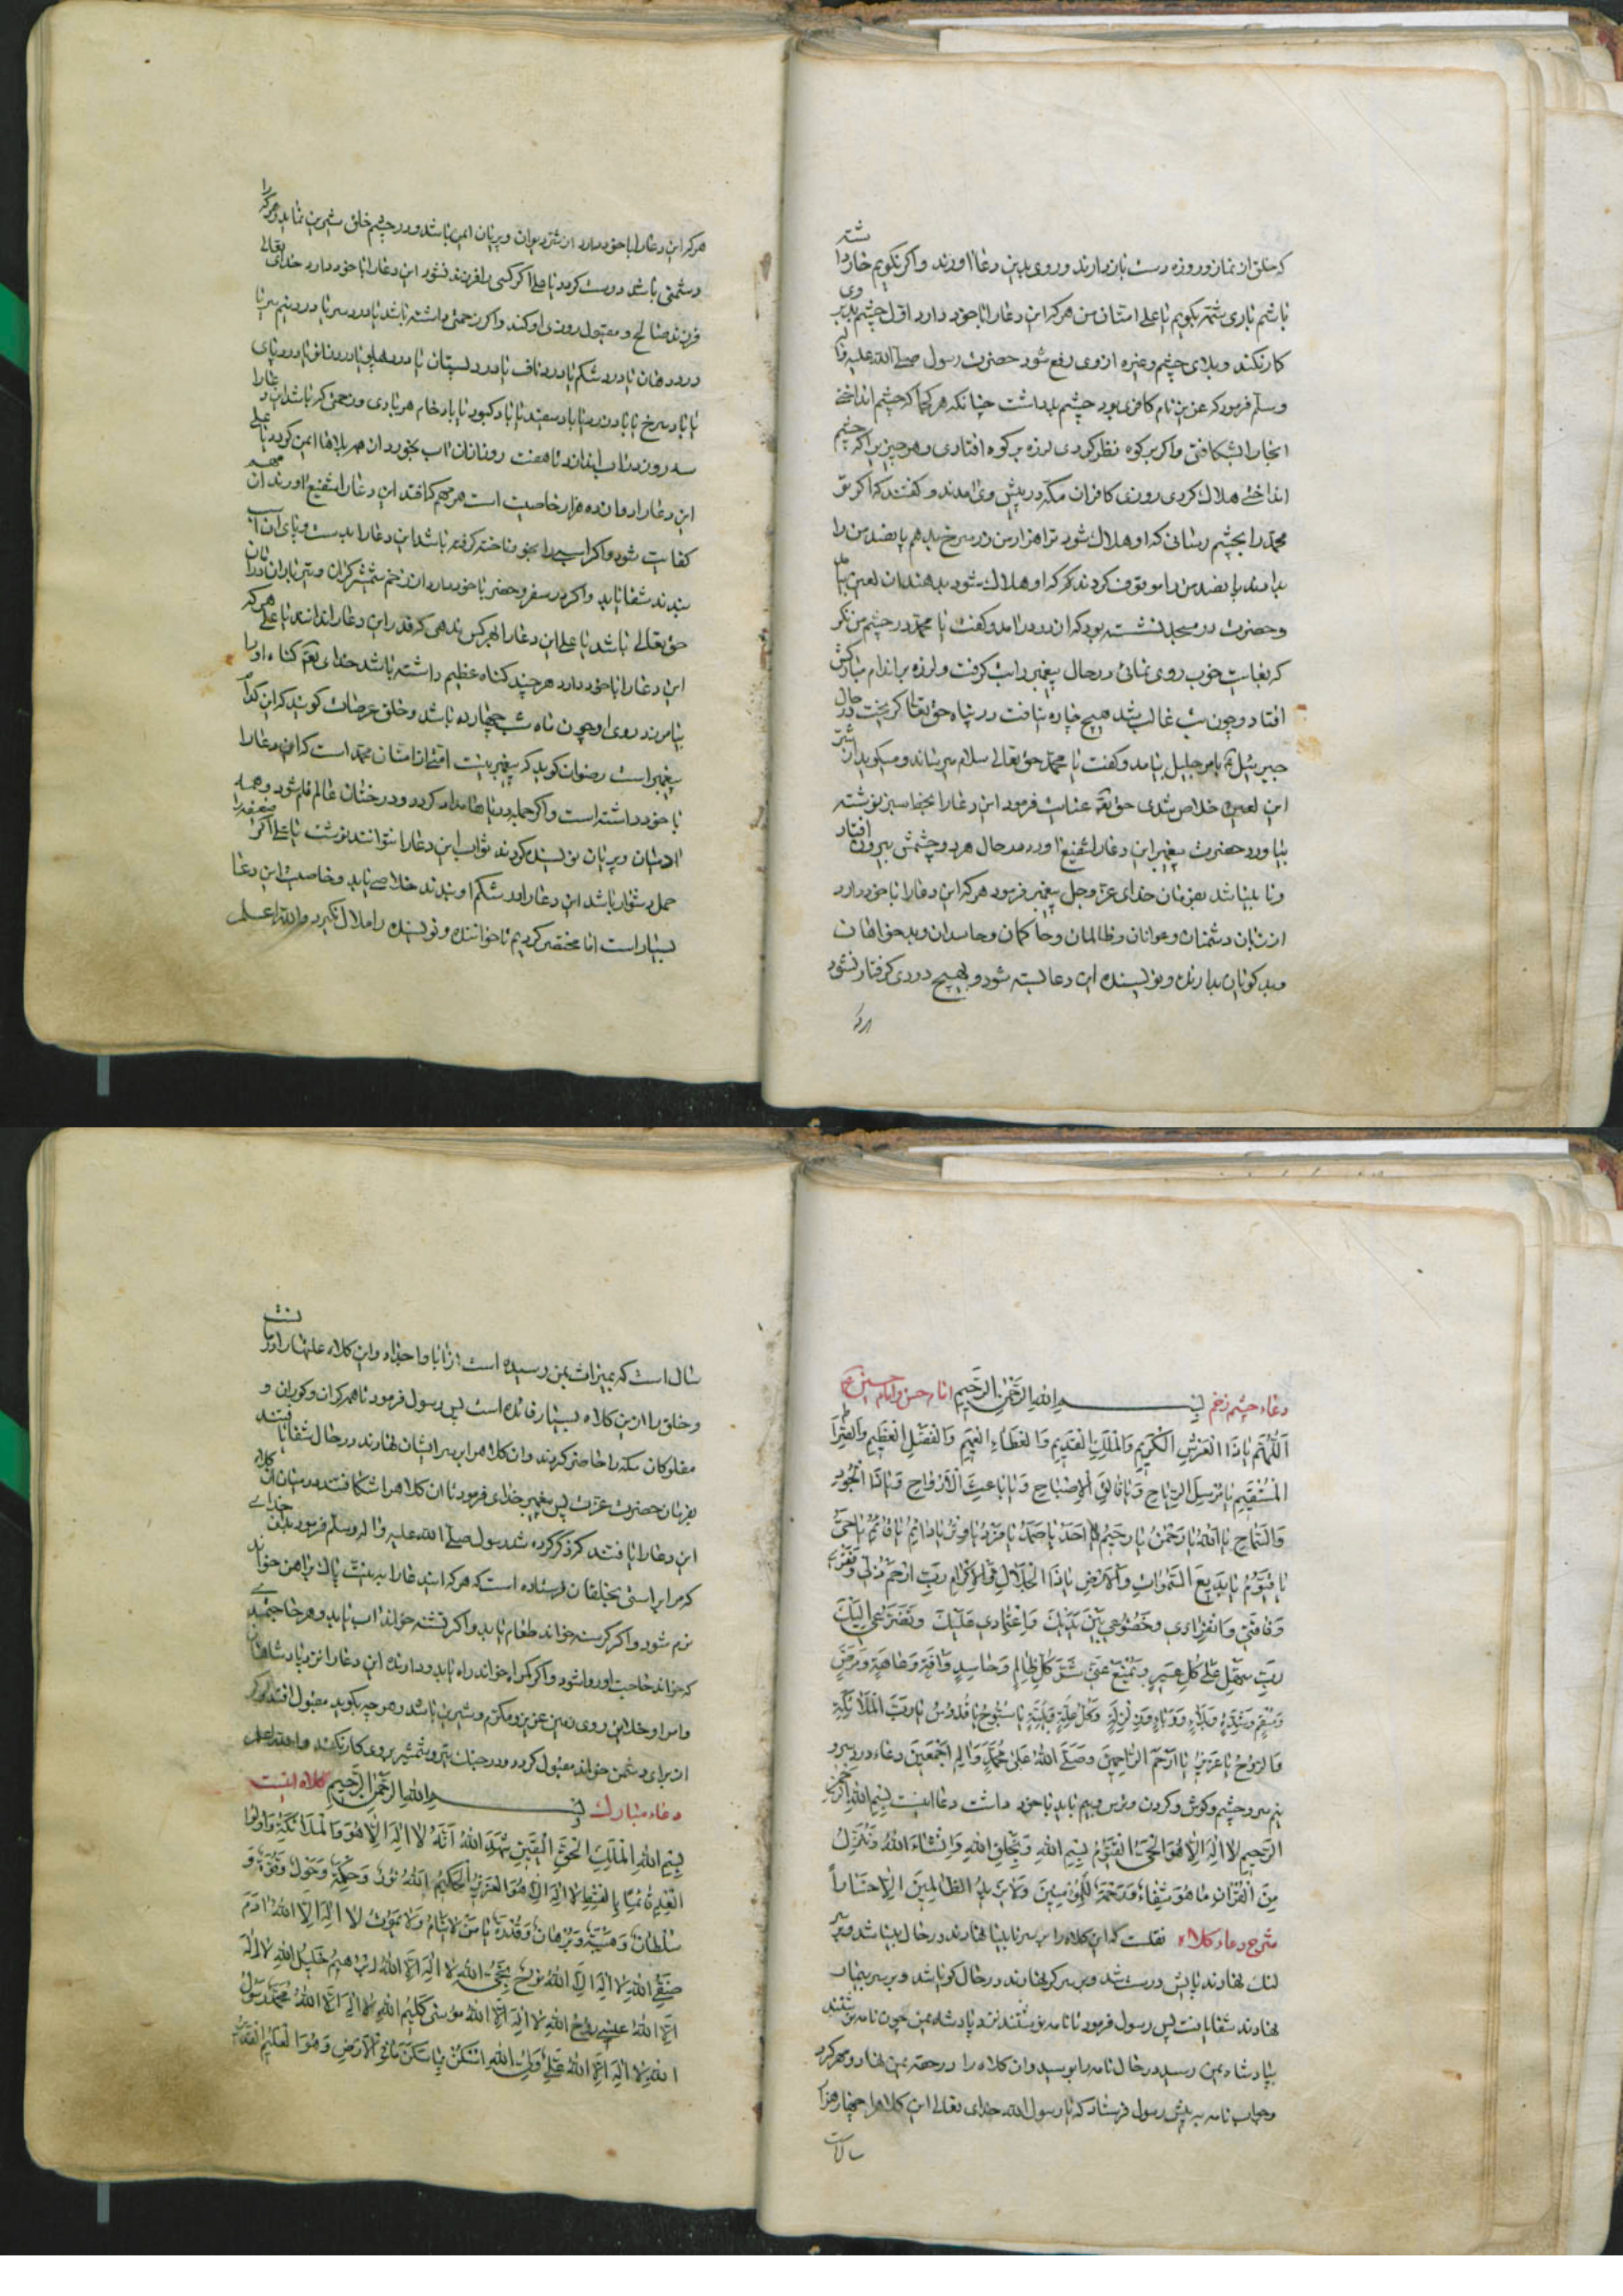 که خلق از نماز و روزه دست بازدارند و روی بدین دعا اورند و اگر نگویم خازدا شته
باشم باری بشتر بگویم یا علی امتان من هر که این دعا را با خود دارد اول چشم بد بر وی
کار نکند و بلای چشم و غیره از وی رفع شود حضرت رسول صلی الله علیه و اله
و سلم فرمود که عزیزی نام کافری بود چشم بد داشت چنانکه هر کجا که چشم انداختی
انجا را بشکافتی و اگر بر کوه نظر کردی لرزه بر کوه افتادی و هر چیز را که چشم
انداختی هلاک کردی روزی کافران مکه در پیش وی امدند و گفتند که اگر تو
محمد را بچشم رسانی که او هلاک شود ترا هزار من زر سرخ بدهم پانصد من را
بدادند پانصد من را موقوف کردند که او هلاک شود بدهند ان لعین
و حضرت در مسجد نشسته بود که از در درامد و گفت یا محمد در چشم من نگر
که بغایت خوب روی نمائی در حال پیغمبر را تب گرفت و لرزه بر اندام مبارکش
افتاد و چون تب غالب شد هیچ چاره نیافت در پناه حق تعالی گریخت در حال
جبرئیل بامر جلیل بیامد و گفت یا محمد حق تعالی سلام میرساند و میگوید از شر
این لعین خلاص شدی حق تعالی عنایت فرمود این دعا را بخط سبز نوشته
بیاورد حضرت پیغمبر این دعا را شفیع اورد در حال هر دو چشمش بیرون افتاد
و نابینا شد بفرمان خدای عز و جل پیغمبر فرمود هر که این دعا را با خود دارد
از زبان دشمنان و عوانان و ظالمان و حاکمان و حاسدان و بدخواهان
و بدگویان دارنده و نویسنده این دعا بسته شود و بهیچ دردی گرفتار نشود
هر که
هر که این دعا را با خود دارد از شر دیوان و پریان ایمن باشد و در چشم خلق شیرین نماید و هر که را
دشمنی باشد دوست گردد یا علی اگر کسی را فرزند نشود این دعا را با خود دارد خدای تعالی
فرزند صالح و مقبول روزی او کند و اگر زحمتی داشته باشد یا درد سر یا درد نیم سر یا
درد دهان یا درد شکم یا درد ناف یا درد پستان یا درد پهلو یا درد زانو یا درد پای
یا باد سرخ یا باد زرد یا باد سفید یا باد کبود یا باد خام هر بادی و زحمتی که باشد این دعا را
سه روز در اب اندازد تا هفت روز ازان اب بخورد از همه بلاها ایمن گردد یا علی
این دعا را دوازده هزار خاصیت است هر مهم که افتد این دعا را شفیع اورند ان مهم
کفایت شود و اگر اسب را جو ناخنه گرفته باشد این دعا را بدست و پای ان اسب
بندند شفا یابد و اگر در سفر و حضر با خود دارد از زخم شمشیر گران و تیر باران در امان
حق تعالی باشد یا علی این دعا را بهر کس ندهی که قدر این دعا را ندانند یا علی هر که
این دعا را با خود دارد هر چند گناه عظیم داشته باشد خدای تعالی گناه او را
بیامرزد روی او چون ماه شب چهارده باشد و خلق عرصات گویند که این کدام
پیغمبر است رضوان گوید که پیغمبر نیست امتی از امتان محمد است که این دعا را
با خود داشته است و اگر جمله دریاها مداد گردد و درختان عالم قلم شود و همه
ادمیان و پریان نویسنده گردند ثواب این دعا را نتوانند نوشت یا علی اگر ضعیفه را
حمل دشوار باشد این دعا را در شکم او بندند خلاصی یابد و خاصیت این دعا
بسیار است اما مختصر کردیم تا خواننده و نویسنده را ملال نگیرد والله اعلم
دعاء چشم زخم بسم الله الرحمن الرحیم امام حسن و امام حسین ع
اَللّٰهُمَّ یَا ذَا الْعَرْشِ الْکَرِیمِ وَالْمَلِکِ الْقَدِیمِ وَالْعَطَاءِ الْعَمِیمِ وَالْفَضْلِ الْعَظِیمِ وَالصِّرَاطِ
الْمُسْتَقِیمِ یَا مُرْسِلَ الرِّیَاحِ وَیَا فَالِقَ الْاِصْبَاحِ وَیَا بَاعِثَ الْاَرْوَاحِ وَیَا ذَا الْجُودِ
وَالسَّمَاحِ یَا اَللّٰهُ یَا رَحْمٰنُ یَا رَحِیمُ یَا اَحَدُ یَا صَمَدُ یَا فَرْدُ یَا وِتْرُ یَا دَائِمُ یَا قَائِمُ یَا حَیُّ
یَا قَیُّومُ یَا بَدِیعَ السَّمٰوَاتِ وَالْاَرْضِ یَا ذَا الْجَلَالِ وَالْاِکْرَامِ رَبِّ ارْحَمْ ذُلّی وَفَقْرِی
وَفَاقَتِی وَانْفِرَادِی وَخُضُوعِی بَیْنَ یَدَیْکَ وَاعْتِمَادِی عَلَیْکَ وَتَضَرُّعِی اِلَیْکَ
رَبِّ سَهِّلْ عَلَیَّ کُلَّ عَسِیرٍ وَتَمْنَعْ عَنِّی شَرَّ کُلِّ ظَالِمٍ وَحَاسِدٍ وَافَةٍ وَعَاهَةٍ وَمَرَضٍ
وَسُقْمٍ وَشِدَّةٍ وَبَلَاءٍ وَوَبَاءٍ وَزَلْزَلَةٍ وَکُلِّ عِلَّةٍ وَبَلِیَّةٍ یَا سُبُّوحُ یَا قُدُّوسُ یَا رَبَّ الْمَلَائِکَةِ
وَالرُّوحِ یَا عَزِیزُ یَا اَرْحَمَ الرَّاحِمِینَ وَصَلَّی اللّٰهُ عَلٰی مُحَمَّدٍ وَاٰلِهِ اَجْمَعِینَ دعاء درد سر و
نیم سر و چشم و گوش و گردن و ترس و بیم باید با خود داشت دعا اینست بِسْمِ اللّٰهِ الرَّحْمٰنِ
الرَّحِیمِ لَا اِلٰهَ اِلَّا هُوَ الْحَیُّ الْقَیُّومُ بِسْمِ اللّٰهِ وَبِخَلْقِ اللّٰهِ وَاِنْشَاءَ اللّٰهُ وَنُنَزِّلُ
مِنَ الْقُرْاٰنِ مَا هُوَ شِفَاءٌ وَرَحْمَةٌ لِلْمُؤْمِنِینَ وَلَا یَزِیدُ الظَّالِمِینَ اِلَّا خَسَاراً
شرح دعاء کلاه نقلست که این کلاه را بر سر نابینا نهادند در حال بینا شد و بر
لنگ نهادند پایش درست شد و بر سر کر نهادند در حال گویا شد و بر سر بیمار
نهادند شفا یافت پس رسول فرمود تا نامه نوشتند نزد پادشاه یمن چون نامه نوشتند
بپادشاه یمن رسید در حال نامه را بوسید و ان کلاه را در حقه یمن نهاد و مهر کرد
و جواب نامه به پیش رسول فرستاد که یا رسول الله خدای تعالی این کلاه را چهار هزار
سالست
سال است که بمیراث بمن رسیده است از ابا و اجداد و این کلاه علتها را دوا
و خلق را ازین کلاه بسیار فائده است پس رسول فرمود تا همه کران و کوران و
مفلوکان مکه را حاضر کردند و ان کلاه را بر سر ایشان نهادند در حال شفا یافتند
بفرمان حضرت عزت پس پیغمبر خدای فرمود تا ان کلاه را شکافتند در میان ان کلاه
این دعا را یافتند که ذکر کرده شد رسول صلی الله علیه و اله و سلم فرمود بدان خدای
که مرا براستی بخلقان فرستاده است که هر که این دعا را به نیت پاک بر اهن خواند
نرم شود و اگر گرسنه خواند طعام یابد و اگر تشنه خواند اب یابد و هر حاجتی
که خواند حاجت او روا شود و اگر گمراه خواند راه یابد و دارنده این دعا را نزد پادشاهان
و امرا و خلایق روی زمین عزیز و مکرم و شیرین باشد و هر چه بگوید مقبول افتد و اگر
از برای دشمن خواند مقبول گردد و در جنگ تیر و شمشیر بر وی کار نکند والله اعلم
دعاء مبارک بسم الله الرحمن الرحیم کلاه اینست
بِسْمِ اللّٰهِ الْمَلِکِ الْحَقِّ الْمُبِینِ شَهِدَ اللّٰهُ اَنَّهُ لَا اِلٰهَ اِلَّا هُوَ وَالْمَلَائِکَةُ وَاُولُوا
الْعِلْمِ قَائِمًا بِالْقِسْطِ لَا اِلٰهَ اِلَّا هُوَ الْعَزِیزُ الْحَکِیمُ اَللّٰهُ نُورٌ وَحِکْمَةٌ وَحَوْلٌ وَقُوَّةٌ وَ
سُلْطَانٌ وَهَیْبَةٌ وَبُرْهَانٌ وَقُدْرَةٌ یَا مَنْ لَا یَنَامُ وَلَا یَمُوتُ لَا اِلٰهَ اِلَّا اللّٰهُ اٰدَمُ
صَفِیُّ اللّٰهِ لَا اِلٰهَ اِلَّا اللّٰهُ نُوحٌ نَجِیُّ اللّٰهِ لَا اِلٰهَ اِلَّا اللّٰهُ اِبْرٰهِیمُ خَلِیلُ اللّٰهِ لَا اِلٰهَ
اِلَّا اللّٰهُ عِیسٰی رُوحُ اللّٰهِ لَا اِلٰهَ اِلَّا اللّٰهُ مُوسٰی کَلِیمُ اللّٰهِ لَا اِلٰهَ اِلَّا اللّٰهُ مُحَمَّدٌ رَسُولُ
اللّٰهِ لَا اِلٰهَ اِلَّا اللّٰهُ عَلِیٌّ وَلِیُّ اللّٰهِ اُسْکُنْ یَا سَکَنَ مَا فِی الْاَرْضِ وَهُوَ الْعَلِیمُ